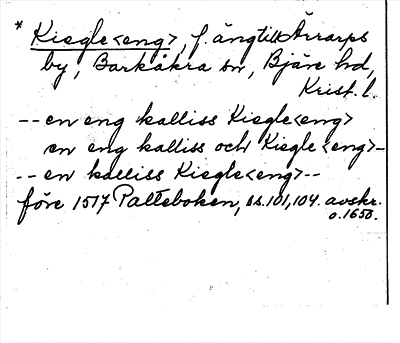 * Kiegle<eng>, f. äng till Ärrarps
by, Barkåkra sn, Bjäre hd,
Krist. l.
-- en eng kalliss Kiegle<eng>
en eng kalliss och Kiegle<eng> -
-- en kalliss Kiegle<eng> --
före 1517 Palteboken, ss. 101, 104. avskr.
o. 1650.